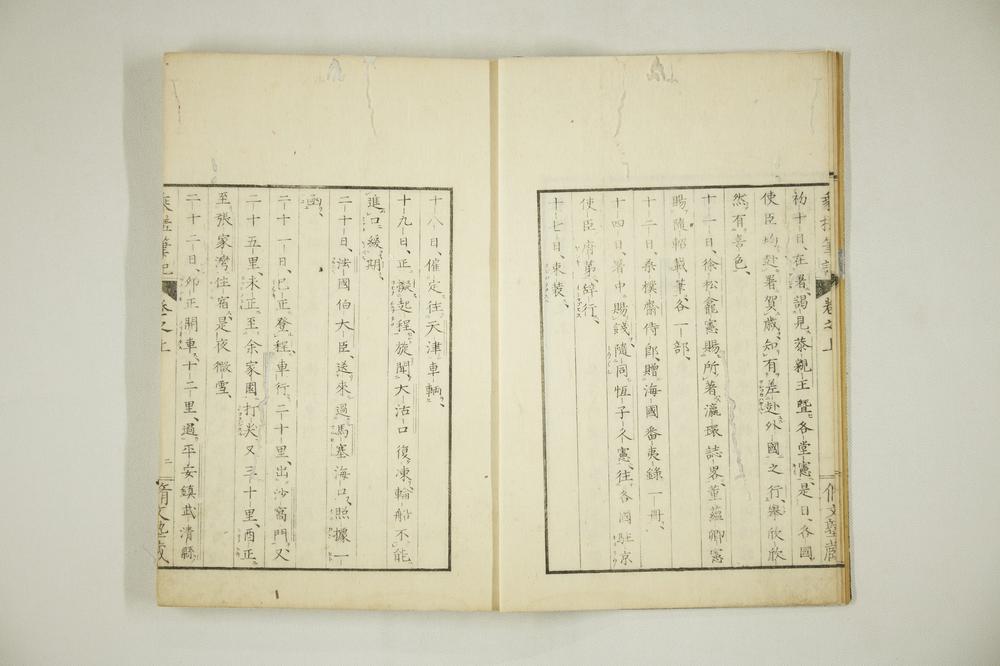 初十日、在署謁見恭親王曁各堂憲、是日、各國
使臣均赴署賀歲、知有差赴外國之行、擧欣欣
然有喜色、
十一日、徐松龕憲賜所著瀛環誌畧、董蘊卿憲
賜隨軺載筆、各一部、
十二日、朶樸齋侍郎、贈海國番夷錄一冊、
十四日、署中賜餞、隨同恆子久憲、往各國駐京
使臣府第綽行、
十七日、束裝、
乘槎筆記 卷之上
脩文塾藏
十八日、催定往天津車輌、
十九日、正擬起程、旋聞大沽口復凍、輪船不能
進口、緩期、
二十日、法國伯大臣、送來過馬塞海口照據一
函、
二十一日、巳正登程、車行二十里、出沙窩門、又
二十五里未正至余家圍打尖、又三十里、酉正
至張家灣住宿、是夜微雪、
二十二日、卯正開車、十二里、過平安鎮武清縣
乘槎筆記 卷之上
二
脩文塾藏